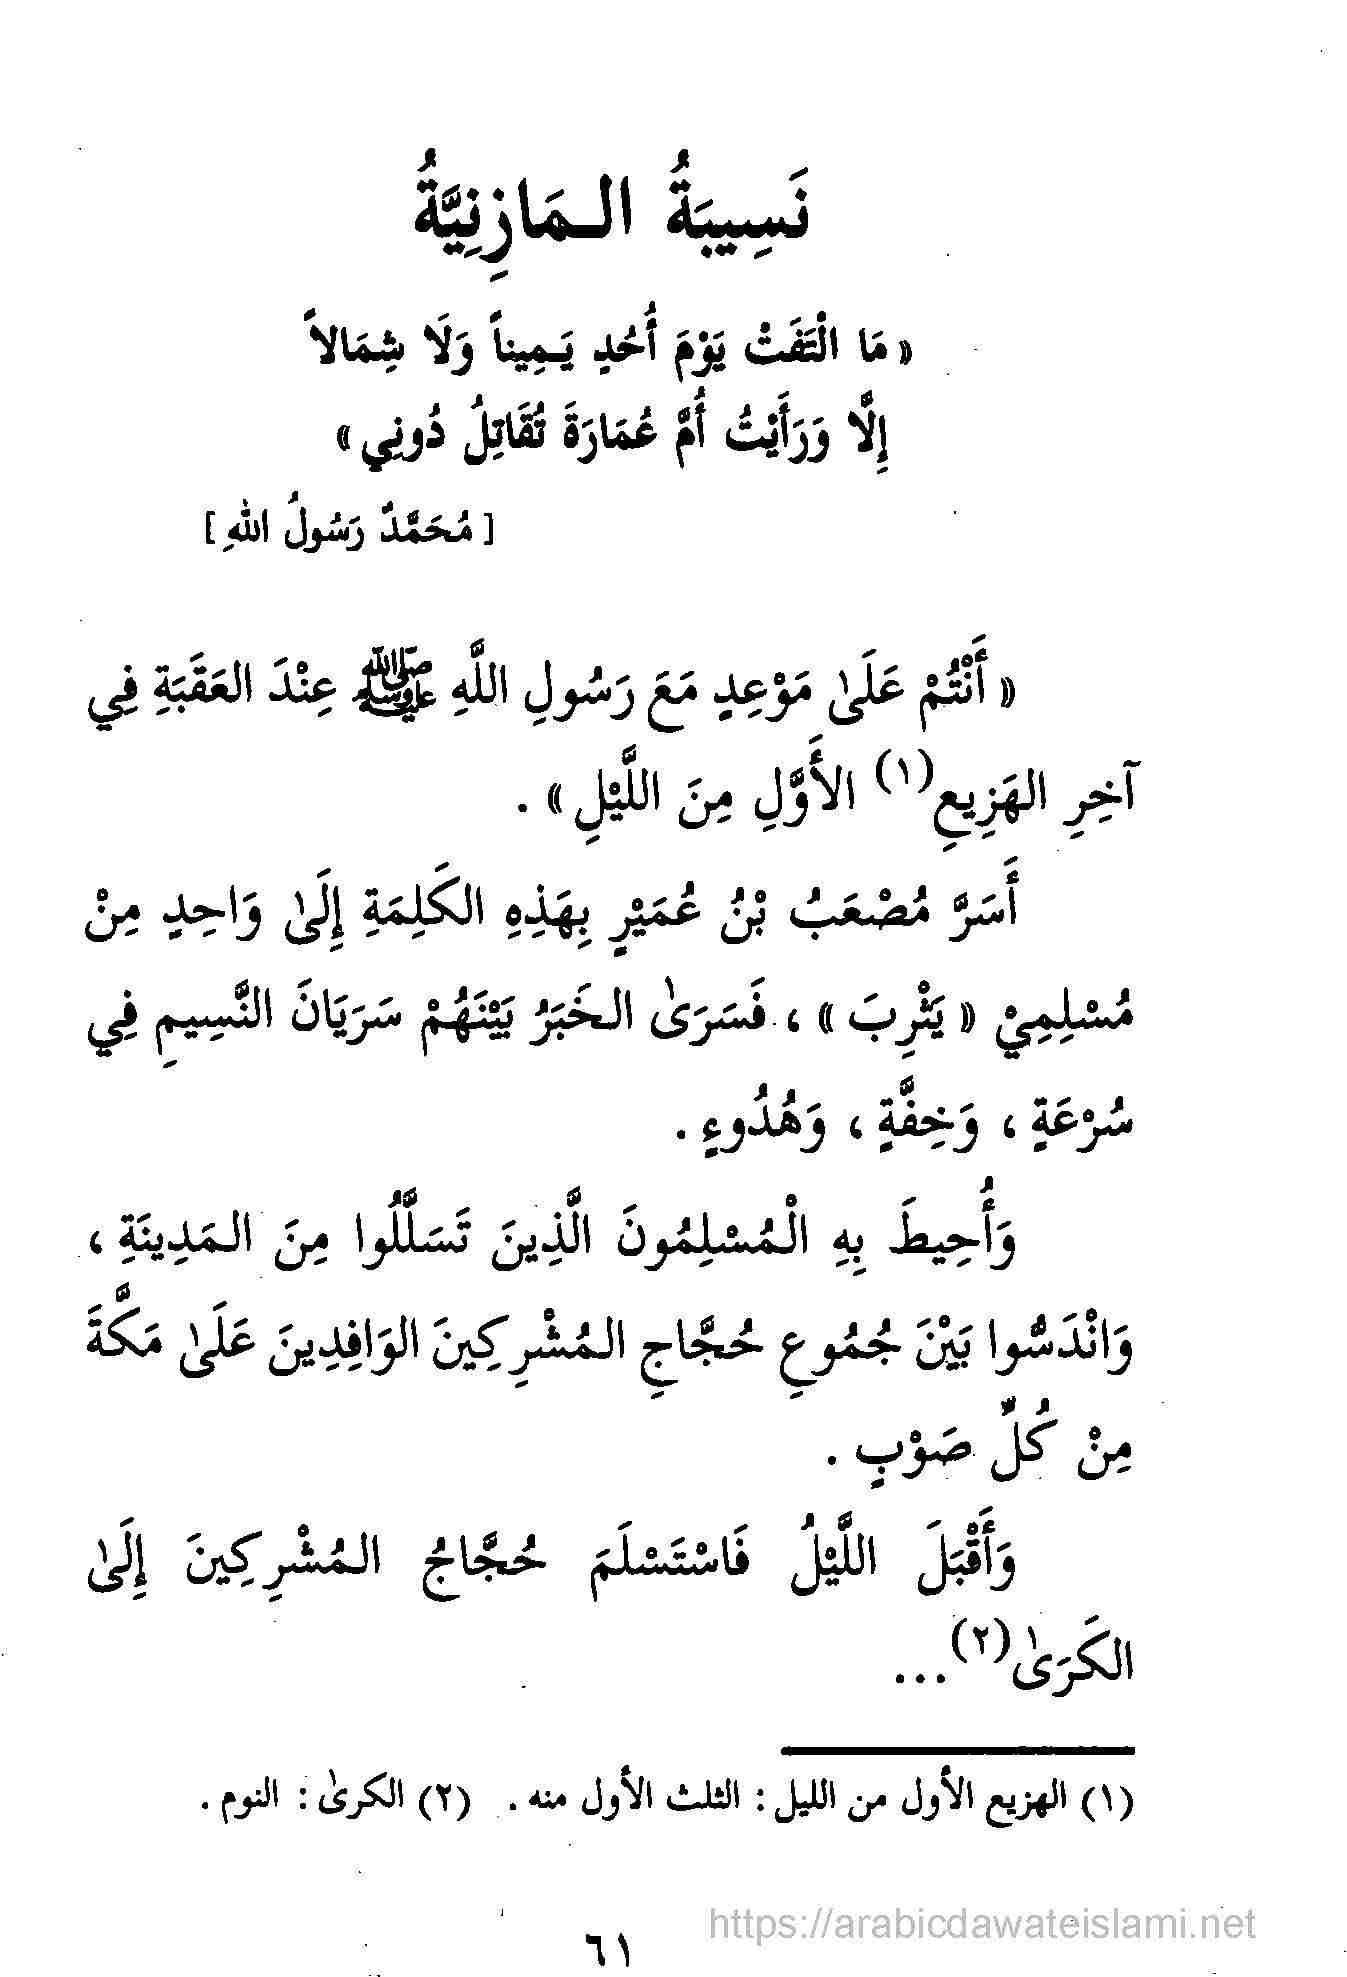 نَسِيبَةُ الـمَازِنِيَّةُ
« مَا الْتَفَتُّ يَوْمَ أُحُدٍ يَـمِيناً وَلَا شِمَالاً
إِلَّا وَرَأَيْتُ أُمَّ عُمَارَةَ تُقَاتِلُ دُونِي »
[ مُحَمَّدٌ رَسُولُ اللهِ ]
« أَنْتُمْ عَلَىٰ مَوْعِدٍ مَعَ رَسُولِ اللَّهِ ﷺ عِنْدَ العَقَبَةِ فِي
آخِرِ الهَزِيعِ(١) الأَوَّلِ مِنَ اللَّيْلِ » .
أَسَرَّ مُصْعَبُ بْنُ عُمَيْرٍ بِهَذِهِ الكَلِمَةِ إِلَىٰ وَاحِدٍ مِنْ
مُسْلِمِيْ « يَثْرِبَ » ، فَسَرَىٰ الـخَبَرُ بَيْنَهُمْ سَرَيَانَ النَّسِيمِ فِي
سُرْعَةٍ ، وَخِفَّةٍ ، وَهُدُوءٍ .
وَأُحِيطَ بِهِ الْـمُسْلِمُونَ الَّذِينَ تَسَلَّلُوا مِنَ الـمَدِينَةِ ،
وَانْدَسُّوا بَيْنَ جُمُوعِ حُجَّاجِ الـمُشْرِكِينَ الوَافِدِينَ عَلَىٰ مَكَّةَ
مِنْ كُلِّ صَوْبٍ .
وَأَقْبَلَ اللَّيْلُ فَاسْتَسْلَمَ حُجَّاجُ الـمُشْرِكِينَ إِلَىٰ
الكَرَىٰ(٢)...
(١) الهزيع الأول من الليل : الثلث الأول منه . (٢) الكرىٰ : النوم .
https://arabicdawateislami.net
٦١